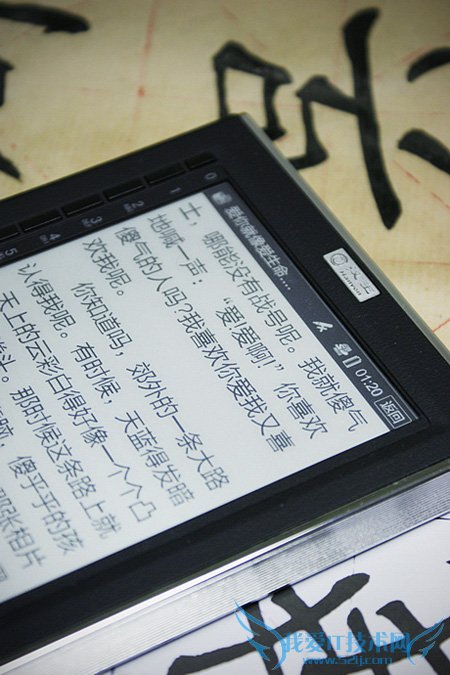 爱你就像爱生命....
01:20 返回
士，哪能没有战号呢。我就傻气
地喊一声：“爱，爱啊！”你喜欢
傻气的人吗？我喜欢你爱我又喜
欢我呢。
你知道吗，郊外的一条大路
认得我呢。有时候，天蓝得发暗
天上的云彩白得好像一个个凸
拳头。那时候这条路上就
傻乎乎的孩
那张相片
汉王
Hanvon
0
1
2
3
4
5
我爱IT技术网
www.52ij.com